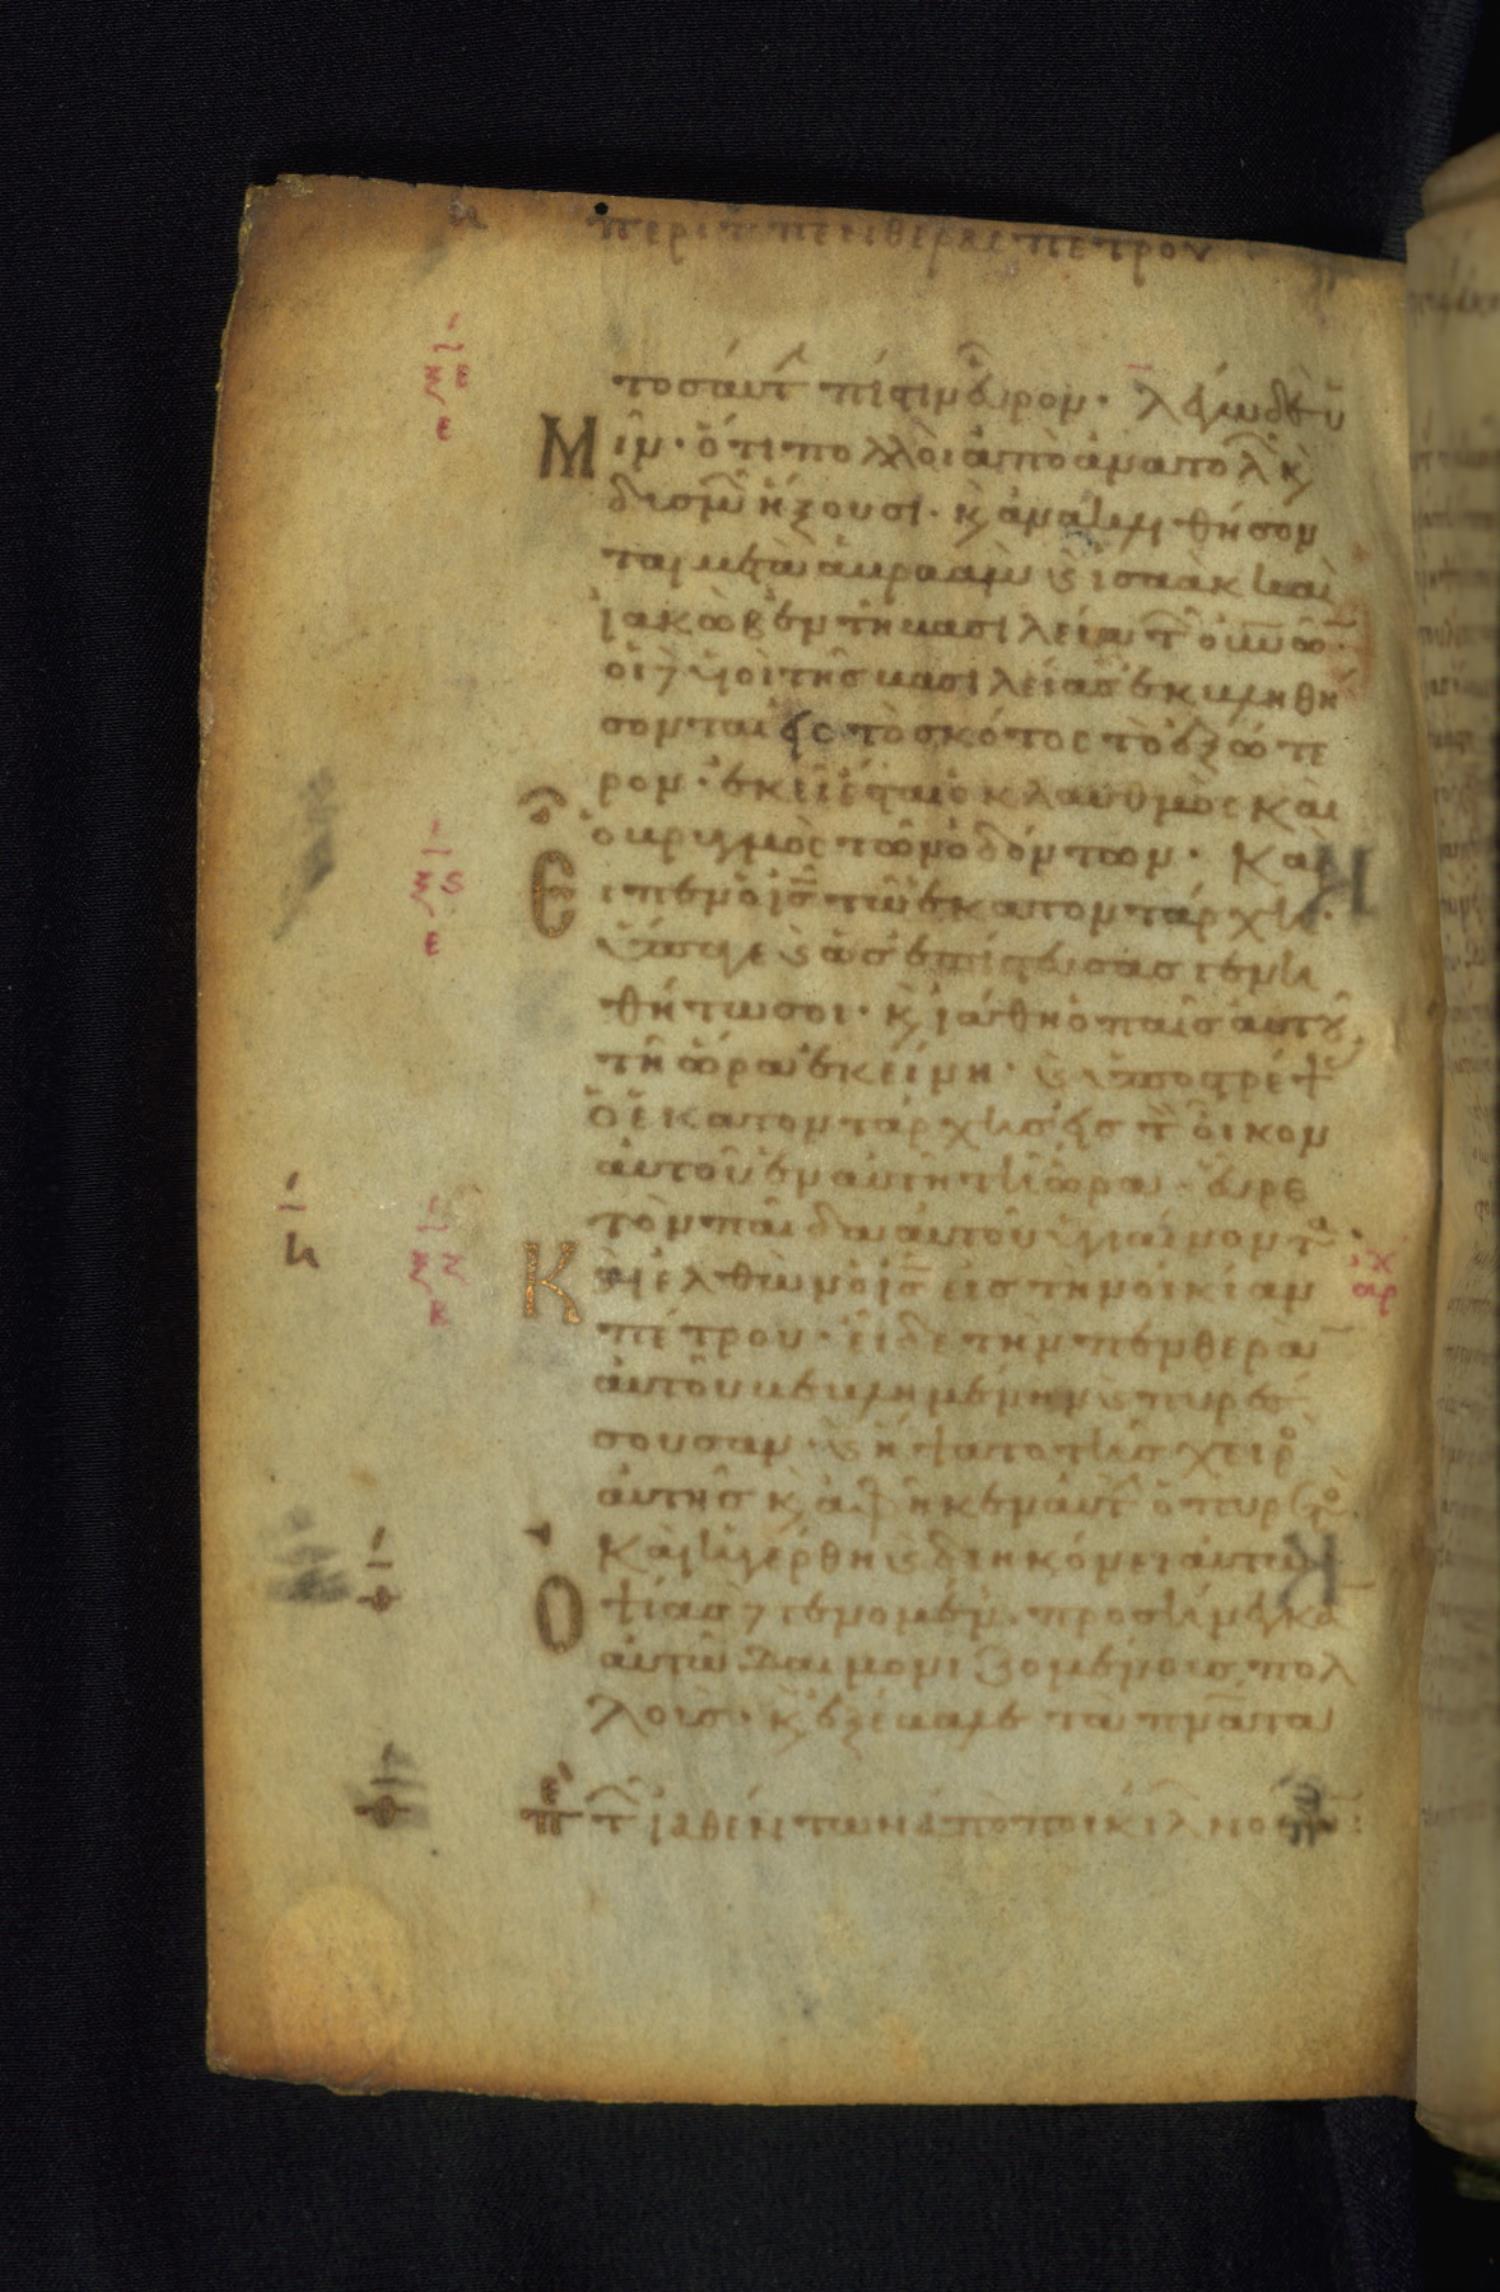 περι τ πενθερας πετρου
τοσαυτ πίστιν εὗρον· λέγω δὲ ὑ
Μῖν· ὅτι πολλοὶ ἀπὸ ἀνατολ κ
δυσμ ἥξουσι· κ ἀνακλιθήσον
ται μετὰ ἀβραὰμ κ ἰσαὰκ καὶ
ἰακὼβ ἐν τῆ βασιλεία τ οὐνων·
οἱ δ υἱοὶ τῆς βασιλείας ἐκβληθή
σονται εἰς τὸ σκότος τὸ ἐξώτε
ρον· ἐκεῖ ἔσται ὁ κλαυθμὸς καὶ
ὁ βρυγμὸς τῶν ὀδόντων· Καὶ
Εἶπεν ὁ ις τῶ ἑκατοντάρχη·
ὕπαγε κ ὡς ἐπίστευσας γενη
θήτω σοι· κ ἰάθη ὁ παῖς αὐτοῦ
τῆ ὥρα ἐκείνη· κ ὑποστρέψ
ὁ ἑκατοντάρχης εἰς τ οἶκον
αὐτοῦ ἐν αὐτῆ τῆ ὥρα· εὗρε
τὸν παῖδα αὐτοῦ ὑγιαίνοντα·
Καὶ ἐλθὼν ὁ ις εἰς τὴν οἰκίαν
πέτρου· εἶδε τὴν πενθερὰ
αὐτοῦ βεβλημένην κ πυρέσ
σουσαν· κ ἥψατο τῆς χειρ
αὐτῆς κ ἀφῆκεν αὐτ ὁ πυρετὸ
Καὶ ἠγέρθη κ διηκόνει αὐτῶ
Οψίας δ γενομέν· προσήνεγκα
αὐτῶ δαιμονιζομένους πολ
λούς· κ ἐξέβαλε τὰ πνατα
τ ἰαθέντων ἀπὸ ποικίλ νόσων: